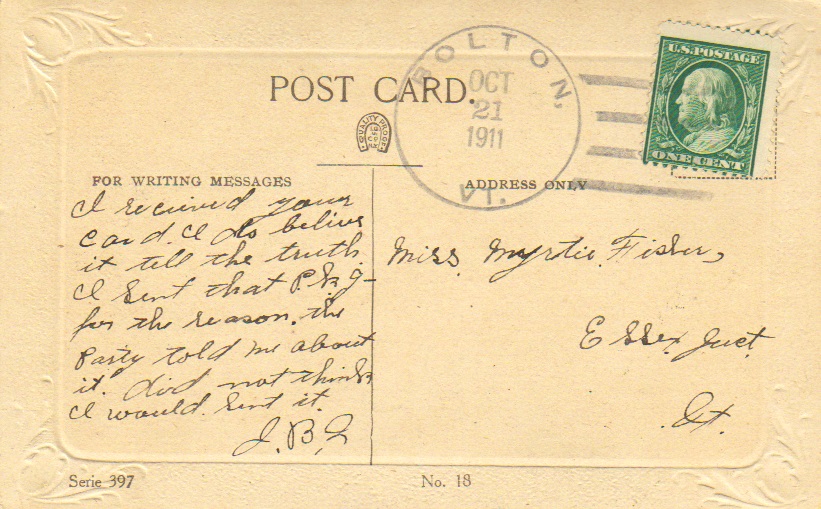 BOLTON,
OCT
21
1911
VT.
U.S. POSTAGE
ONE CENT
POST CARD.
QUALITY PROOF
FOR WRITING MESSAGES
ADDRESS ONLY
I recieved your
card. I do belive
it tell the truth.
I sent that
for the reason. the
Party told me about
it did not think
I would sent it.
J.B.
Miss. Myrtie Fisher,
Essex Junct.
Vt.
Serie 397
No. 18